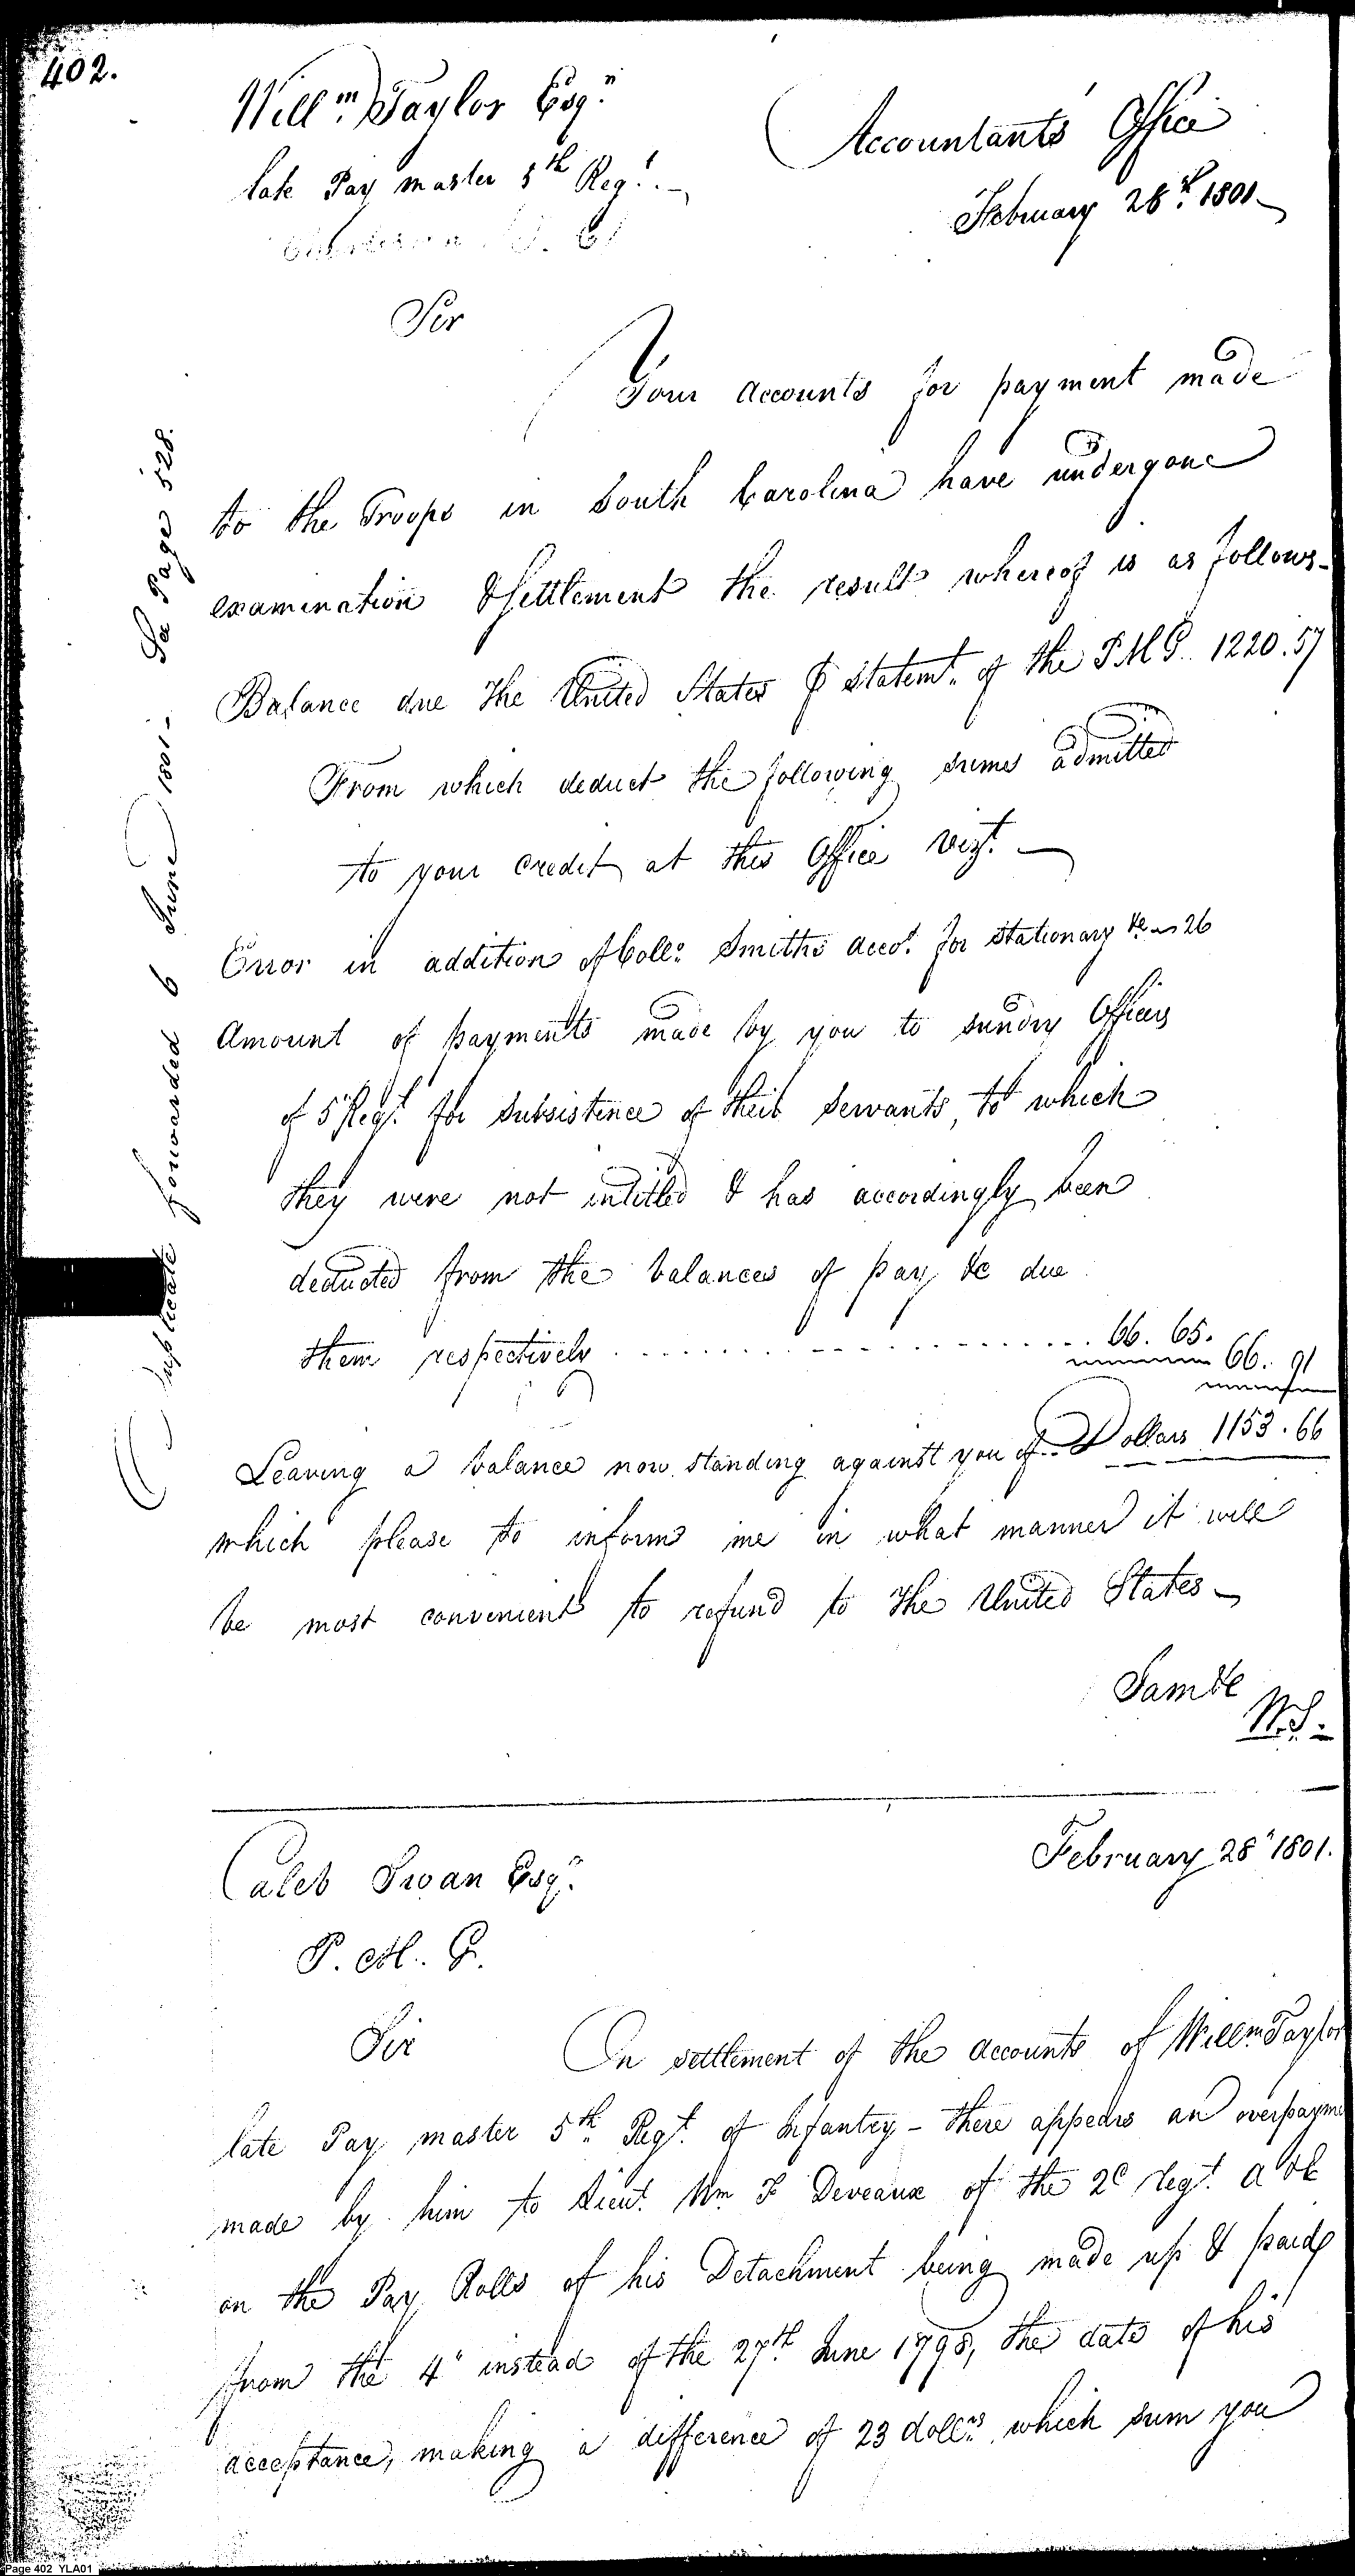 402.
Willm. Taylor Esqr.
late Pay master 5th Regt.
Charleston S. C.
Accountants Office
February 28th. 1801
Sir
Your accounts for payment made
to the Troops in South Carolina have undergone
examination & settlement the result whereof is as follows
Balance due the United States ⅌ statemt. of the P M G.. 1220.57
From which deduct the following sums admitted
to your credit at this Office vizt.
Error in addition of Colln. Smiths accot. for stationary &c 26
Amount of payments made by you to sundry Officers
of 5 Regt. for subsistence of their servants, to which
they were not intitled & has accordingly been
deducted from the balances of pay &c due
them respectively . . . . . . . . . . 66. 65.
66. 91
Leaving a balance now standing against you of Dollars 1153.66
which please to inform me in what manner it will
be most convenient to refund to the United States
Sam &c
W. S.
Duplicate forwarded 6 June 1801 - See Page 528.
Caleb Swan Esqr.
P. M. G.
February 28" 1801.
Sir
On settlement of the accounts of Willm. Taylor
late Pay master 5th. Regt. of Infantry - there appears an overpayme
made by him to Lieut. Wm F Deveaux of the 2d regt. A & E
on the Pay Rolls of his Detachment being made up & paid
from the 4" instead of the 27th June 1798, the date of his
acceptance, making a difference of 23 dollrs. which sum you
Page 402 YLA01